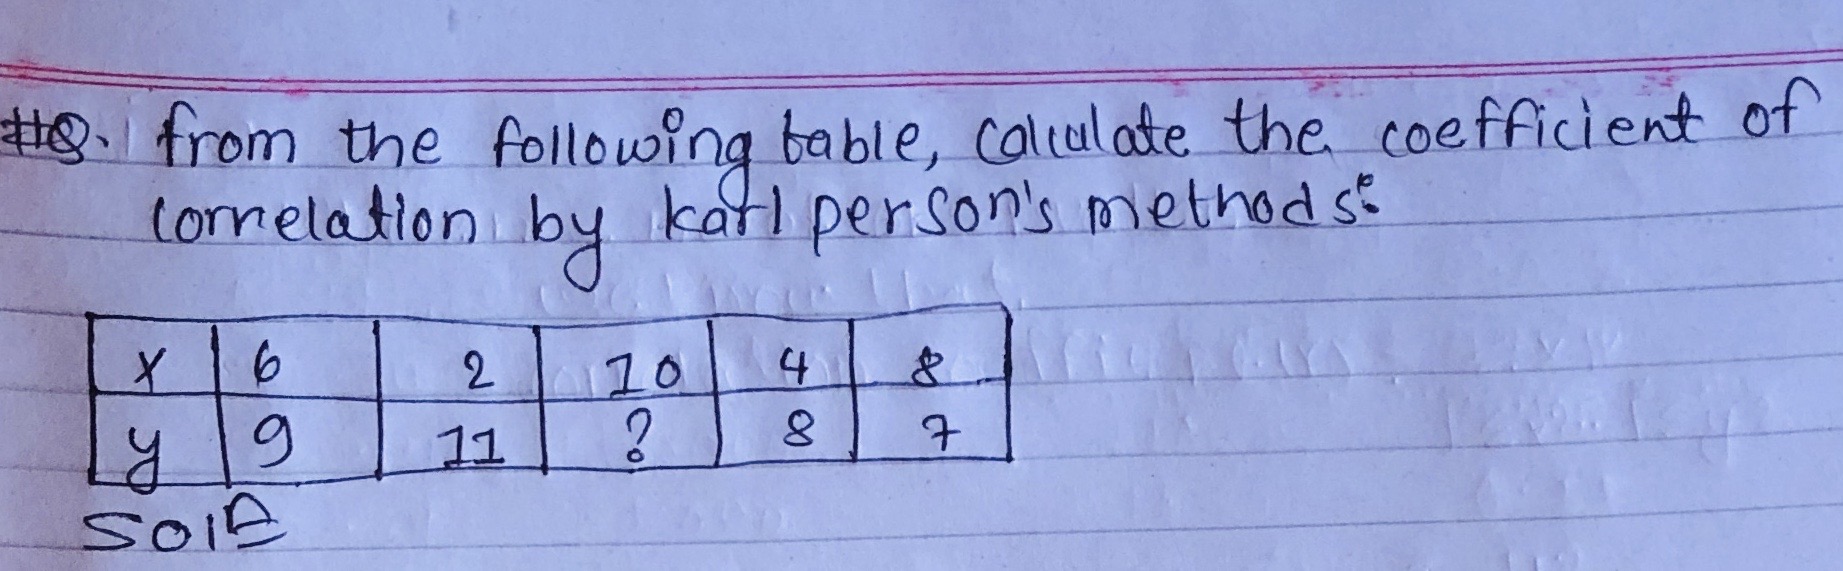 #Q. from the following table, calculate the coefficient of
correlation by karl person's methods:
x 6 2 10 4 8
y 9 11 ? 8 7
Soln